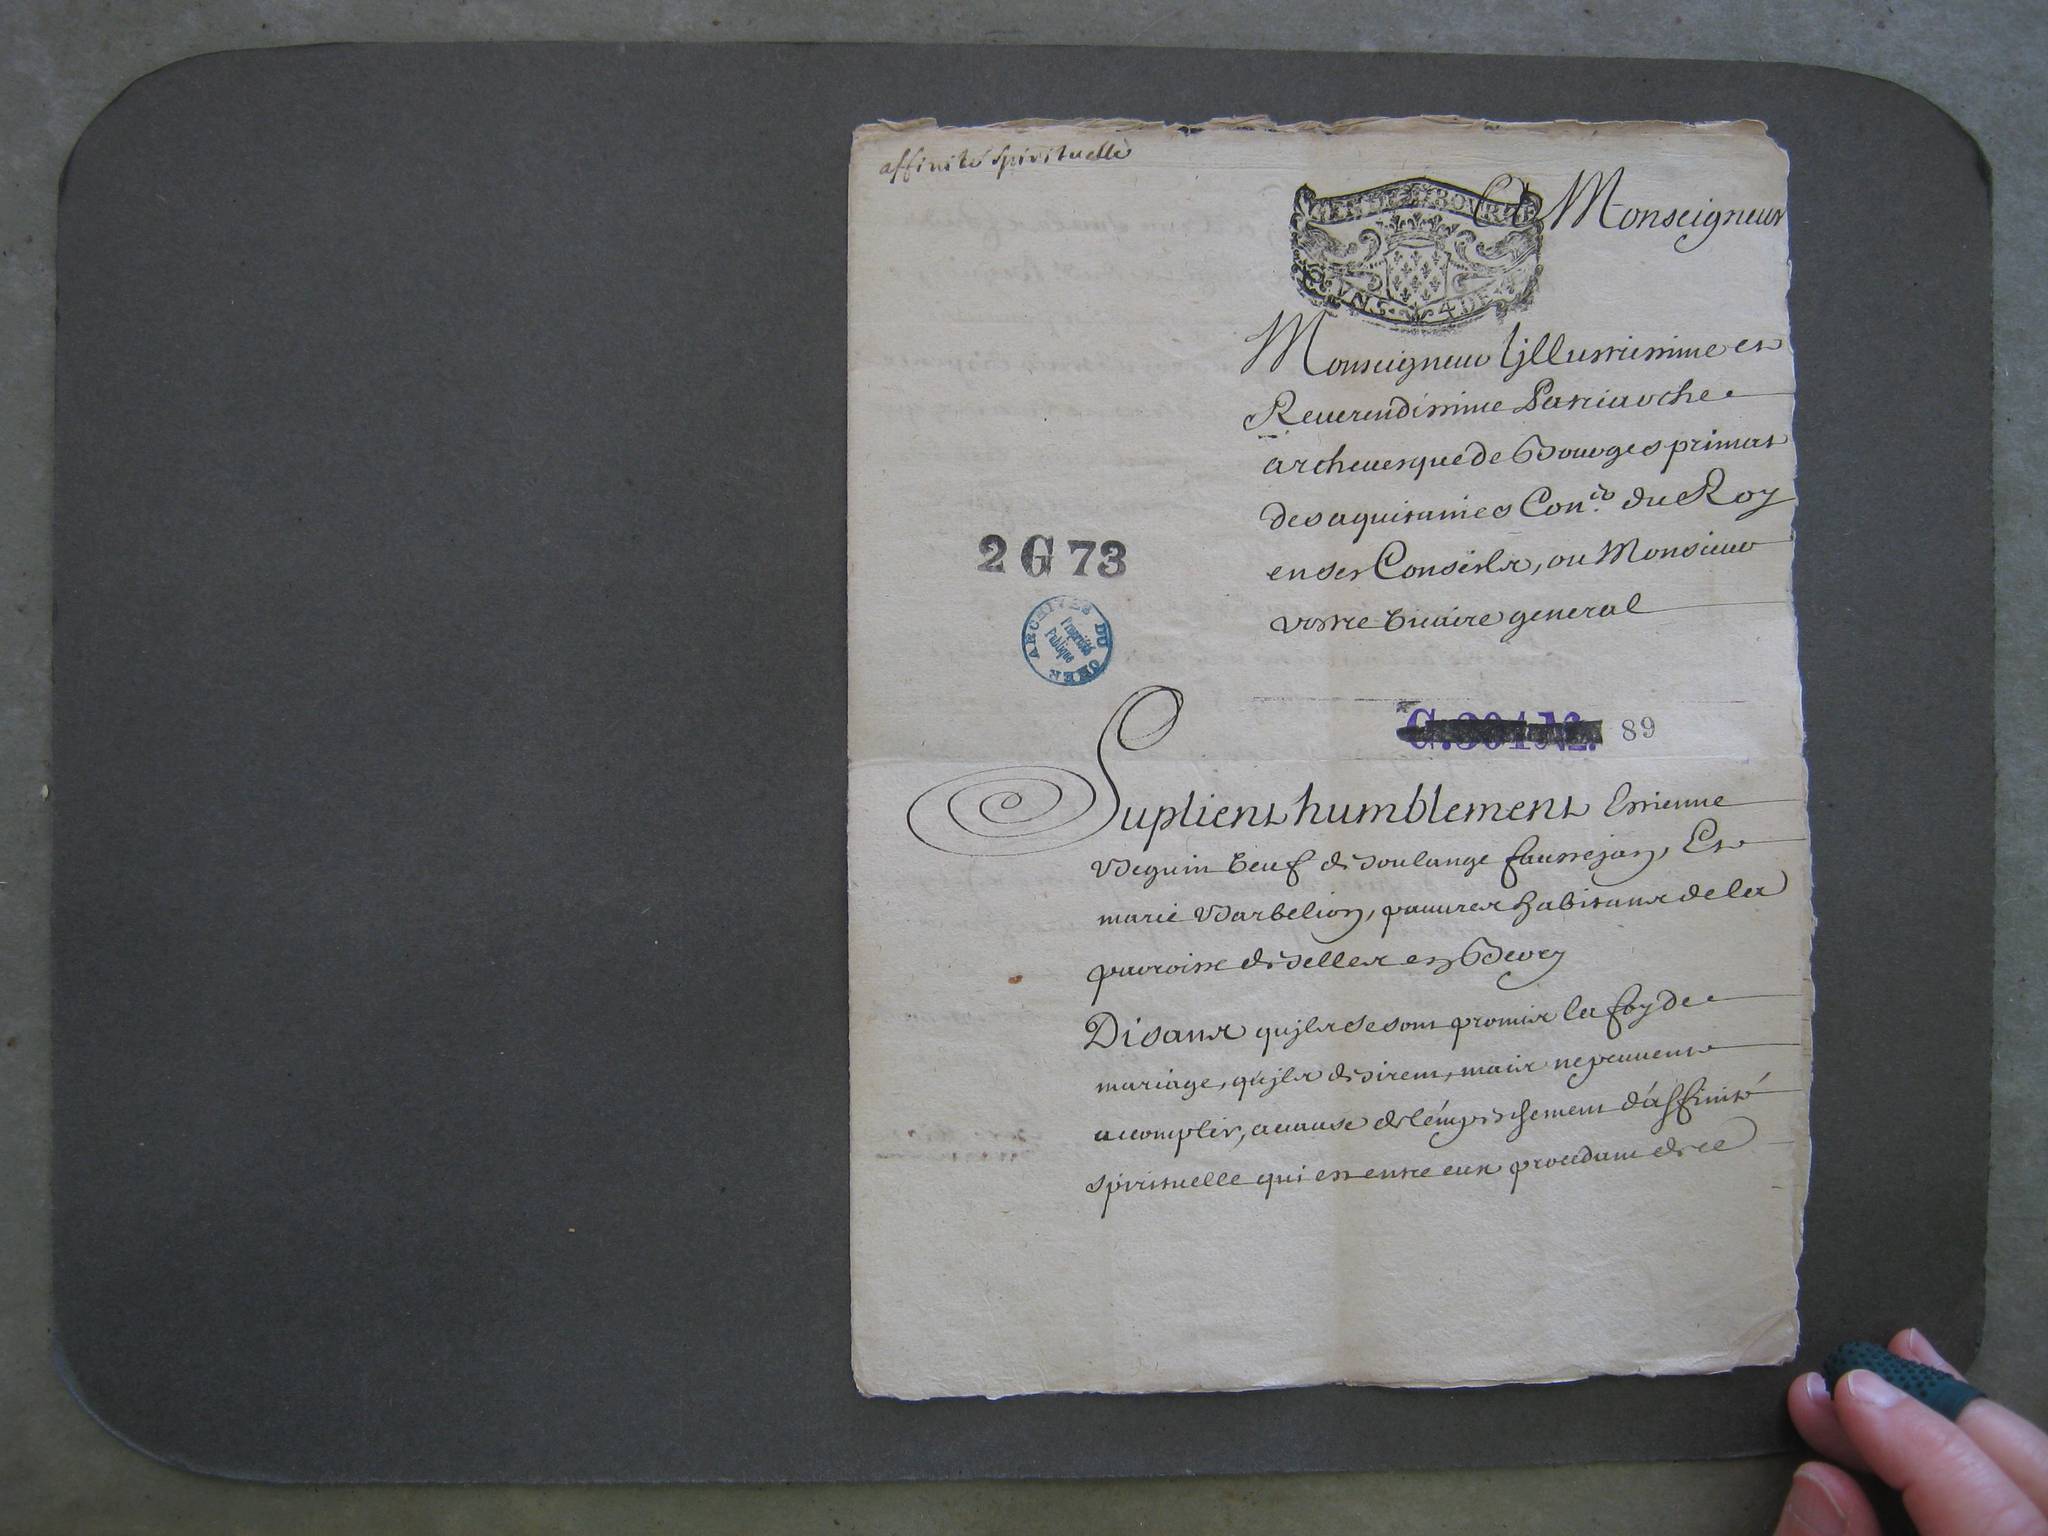 affinité spirituelle
A Monseigneur
GEN. DE BOURGES
Monseigneur Jllustrissime et
Reuerendissime Patriarche
archeuesque de Bourges primat
des aquitaines Con.er du Roy
en ses Conseils, ou Monsieur
vostre vicaire general
2 G 73
ARCHIVES DU CHER
Propriété
Publique
G. 301 No. 89
Suplient humblement Estienne
Beguin veuf de Solange faussejan, Et
marie Barbelion, pauures habitans de la
parroisse de Selles en Berry
Disans qu'jls se sont promis la foy de
mariage, qu'jls desirent, mais ne peuuent
accomplir, a cause de l'empeschement d'affinité
spirituelle qui est entre eux procedant de ce